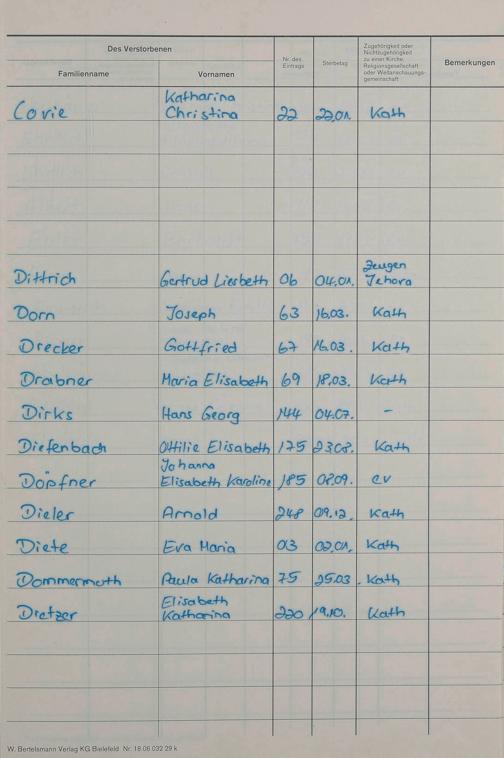 Des Verstorbenen
Familienname
Vornamen
Nr. des
Eintrags
Sterbetag
Zugehörigkeit oder
Nichtzugehörigkeit
zu einer Kirche,
Religionsgesellschaft
oder Weltanschauungs-
gemeinschaft
Bemerkungen
Katharina
Covie Christina 22 22.01. Kath
Zeugen
Dittrich Gertrud Liesbeth 06 04.01. Jehova
Dorn Joseph 63 16.03. Kath
Drecker Gottfried 67 16.03. Kath
Drabner Maria Elisabeth 69 18.03. Kath
Dirks Hans Georg 144 04.07. -
Diefenbach Ottilie Elisabeth 175 23.08. Kath
Johanna
Döpfner Elisabeth Karoline 185 08.09. ev
Dieler Arnold 248 09.12. Kath
Diete Eva Maria 013 02.01. Kath
Dommermuth Paula Katharina 75 25.03. Kath
Elisabeth
Dietzer Katharina 220 19.10. Kath
W. Bertelsmann Verlag KG Bielefeld Nr. 18 06 032 29 k